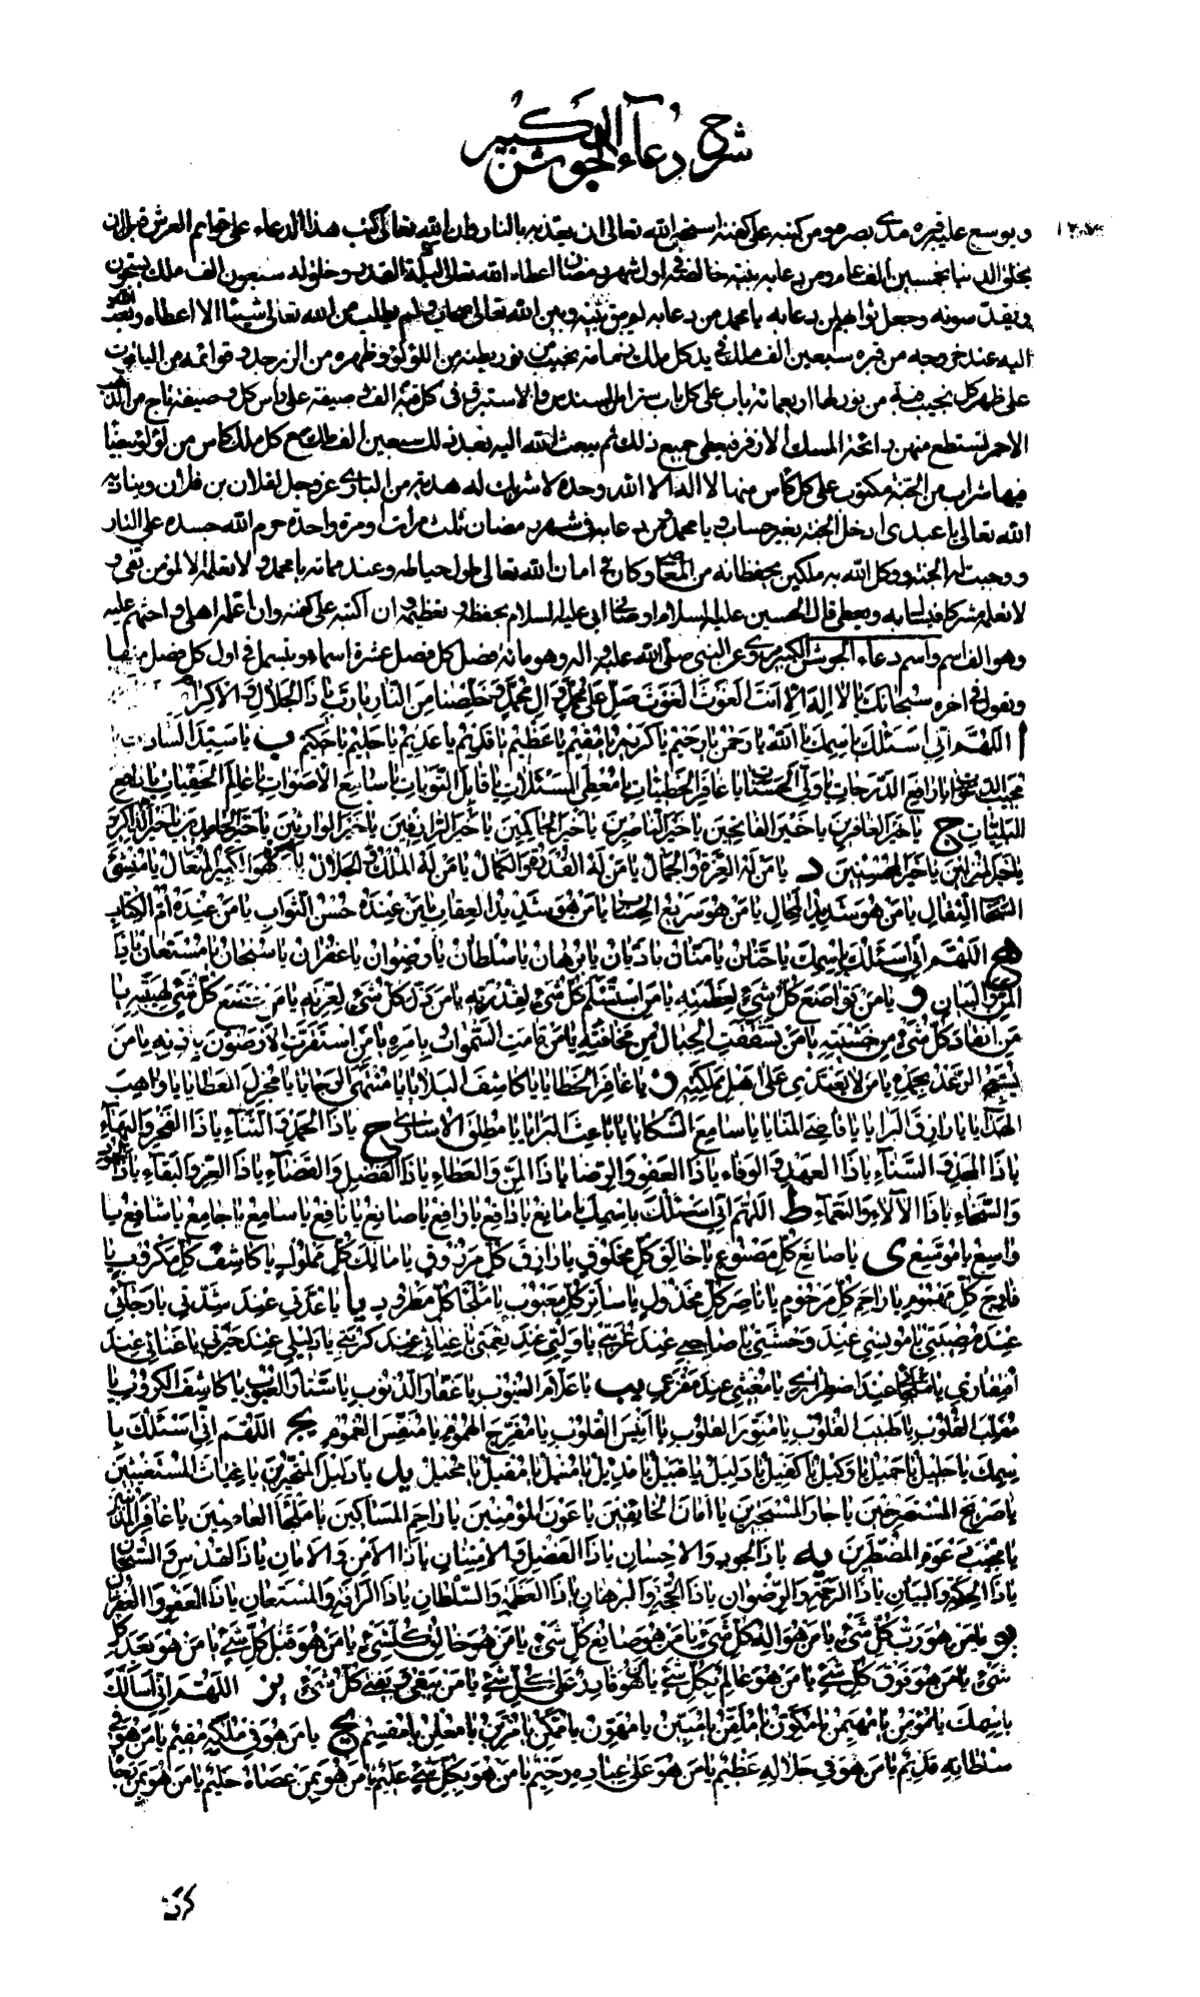 شرح دعاء الجوشن الكبير
ويوسع عليه قبره مد بصره ومن كتبه على كفنه استحى الله تعالى ان يعذبه بالنار وان الله تعالى كتب هذا الدعاء على قوائم العرش قبل ان
يخلق الدنيا بخمسين الف عام ومن دعا به بنية خالصة في اول شهر رمضان اعطاه الله تعالى ليلة القدر وخلق له سبعون الف ملك يسبحون
ويقدسونه وجعل ثوابهم لمن دعا به يا محمد من دعا به لم يبق بينه وبين الله تعالى حجاب ولم يطلب من الله تعالى شيئا الا اعطاه
اليه عند خروجه من قبره سبعين الف ملك في يد كل ملك زمام نجيب من نور بطنه من اللؤلؤ وظهره من الزبرجد وقوائمه من الياقوت
على ظهر كل نجيب قبة من نور لها اربعمائة باب على كل باب ستر من السندس والاستبرق في كل قبة الف وصيفة على رأس كل وصيفة تاج من الذهب
الاحمر تسطع منهن رائحة المسك الاذفر فيعطى جميع ذلك ثم يبعث الله اليه بعد ذلك سبعين الف ملك مع كل ملك كاس من لؤلؤ بيضا
فيها شراب من الجنة مكتوب على كل كأس منها لا اله الا الله وحده لا شريك له هدية من البارئ عز وجل لفلان بن فلان ويناديه
الله تعالى يا عبدى ادخل الجنة بغير حساب يا محمد ومن دعا به في شهر رمضان ثلث مرات او مرة واحدة حرم الله جسده على النار
ووجبت له الجنة ووكل الله به ملكين يحفظانه من المعاصى وكان في امان الله تعالى طول حياته وعند مماته يا محمد ولا تعلمه الا لمؤمن تقى و
لا تعلمه مشركا فيسئل به ويعطى قال الحسين عليه السلام اوصانى ابى عليه السلام بحفظه وتعظيمه وان اكتبه على كفنه وان اعلمه اهلى واحثهم عليه
وهو الف اسم واسم دعاء الجوشن الكبير مروى عن النبى صلى الله عليه واله وهو مائة فصل كل فصل عشرة اسماء وتبسمل في اول كل فصل منها
وتقول في اخره سبحانك يا لا اله الا انت الغوث الغوث صل على محمد وال محمد وخلصنا من النار يا رب يا ذا الجلال والاكرام
ا اللهم انى اسئلك باسمك يا الله يا رحمن يا رحيم يا كريم يا مقيم يا عظيم يا قديم يا عليم يا حليم يا حكيم ب يا سيد السادات يا
مجيب الدعوات يا رافع الدرجات يا ولى الحسنات يا غافر الخطيئات يا معطى المسئلات يا قابل التوبات يا سامع الاصوات يا عالم الخفيات يا دافع
البليات ج يا خير الغافرين يا خير الفاتحين يا خير الناصرين يا خير الحاكمين يا خير الرازقين يا خير الوارثين يا خير الحامدين يا خير الذاكرين
يا خير المنزلين يا خير المحسنين د يا من له العزة والجمال يا من له القدرة والكمال يا من له الملك والجلال يا من هو الكبير المتعال يا منشئ
السحاب الثقال يا من هو شديد المحال يا من هو سريع الحساب يا من هو شديد العقاب يا من عنده حسن الثواب يا من عنده ام الكتاب
ه اللهم انى اسئلك باسمك يا حنان يا منان يا ديان يا برهان يا سلطان يا رضوان يا غفران يا سبحان يا مستعان يا ذا
المن والبيان و يا من تواضع كل شئ لعظمته يا من استسلم كل شئ لقدرته يا من ذل كل شئ لعزته يا من خضع كل شئ لهيبته يا
من انقاد كل شئ من خشيته يا من تشققت الجبال من مخافته يا من قامت السموات بامره يا من استقرت الارضون باذنه يا من
يسبح الرعد بحمده يا من لا يعتدى على اهل مملكته ز يا غافر الخطايا يا كاشف البلايا يا منتهى الرجايا يا مجزل العطايا يا واهب
الهدايا يا رازق البرايا يا قاضى المنايا يا سامع الشكايا يا باعث البرايا يا مطلق الاسارى ح يا ذا الحمد والثناء يا ذا الفخر والبهاء
يا ذا المجد والسناء يا ذا العهد والوفاء يا ذا العفو والرضا يا ذا المن والعطاء يا ذا الفضل والقضاء يا ذا العز والبقاء يا ذا الجود
والسخاء يا ذا الالاء والنعماء ط اللهم انى اسئلك باسمك يا مانع يا دافع يا رافع يا صانع يا نافع يا سامع يا جامع يا شافع يا
واسع يا موسع ى يا صانع كل مصنوع يا خالق كل مخلوق يا رازق كل مرزوق يا مالك كل مملوك يا كاشف كل مكروب يا
فارج كل مهموم يا راحم كل مرحوم يا ناصر كل مخذول يا ساتر كل معيوب يا ملجأ كل مطرود يا يا عدتى عند شدتى يا رجائى
عند مصيبتى يا مونسى عند وحشتى يا صاحبى عند غربتى يا وليى عند نعمتى يا غياثى عند كربتى يا دليلى عند حيرتى يا غنائى عند
افتقارى يا ملجائى عند اضطرارى يا مغيثى عند مفزعى يب يا علام الغيوب يا غفار الذنوب يا ستار العيوب يا كاشف الكروب يا
مقلب القلوب يا طبيب القلوب يا منور القلوب يا انيس القلوب يا مفرج الهموم يا منفس الغموم يج اللهم انى اسئلك با
سمك يا جليل يا جميل يا وكيل يا كفيل يا دليل يا قبيل يا مديل يا منيل يا مقيل يا محيل يد يا دليل المتحيرين يا غياث المستغيثين
يا صريخ المستصرخين يا جار المستجيرين يا امان الخائفين يا عون المؤمنين يا راحم المساكين يا ملجأ العاصين يا غافر المذنبين
يا مجيب دعوة المضطرين يه يا ذا الجود والاحسان يا ذا الفضل والامتنان يا ذا الامن والامان يا ذا القدس والسبحان
يا ذا الحكمة والبيان يا ذا الرحمة والرضوان يا ذا الحجة والبرهان يا ذا العظمة والسلطان يا ذا الرأفة والمستعان يا ذا العفو والغفران
يو يا من هو رب كل شئ يا من هو اله كل شئ يا من هو صانع كل شئ يا من هو خالق كل شئ يا من هو قبل كل شئ يا من هو بعد كل
شئ يا من هو فوق كل شئ يا من هو عالم بكل شئ يا من هو قادر على كل شئ يا من يبقى ويفنى كل شئ يز اللهم انى اسألك
باسمك يا مؤمن يا مهيمن يا مكون يا ملقن يا مبين يا مهون يا ممكن يا مزين يا معلن يا مقسم يح يا من هو في ملكه مقيم يا من هو في
سلطانه قديم يا من هو في جلاله عظيم يا من هو على عباده رحيم يا من هو بكل شئ عليم يا من هو بمن عصاه حليم يا من هو بمن رجا